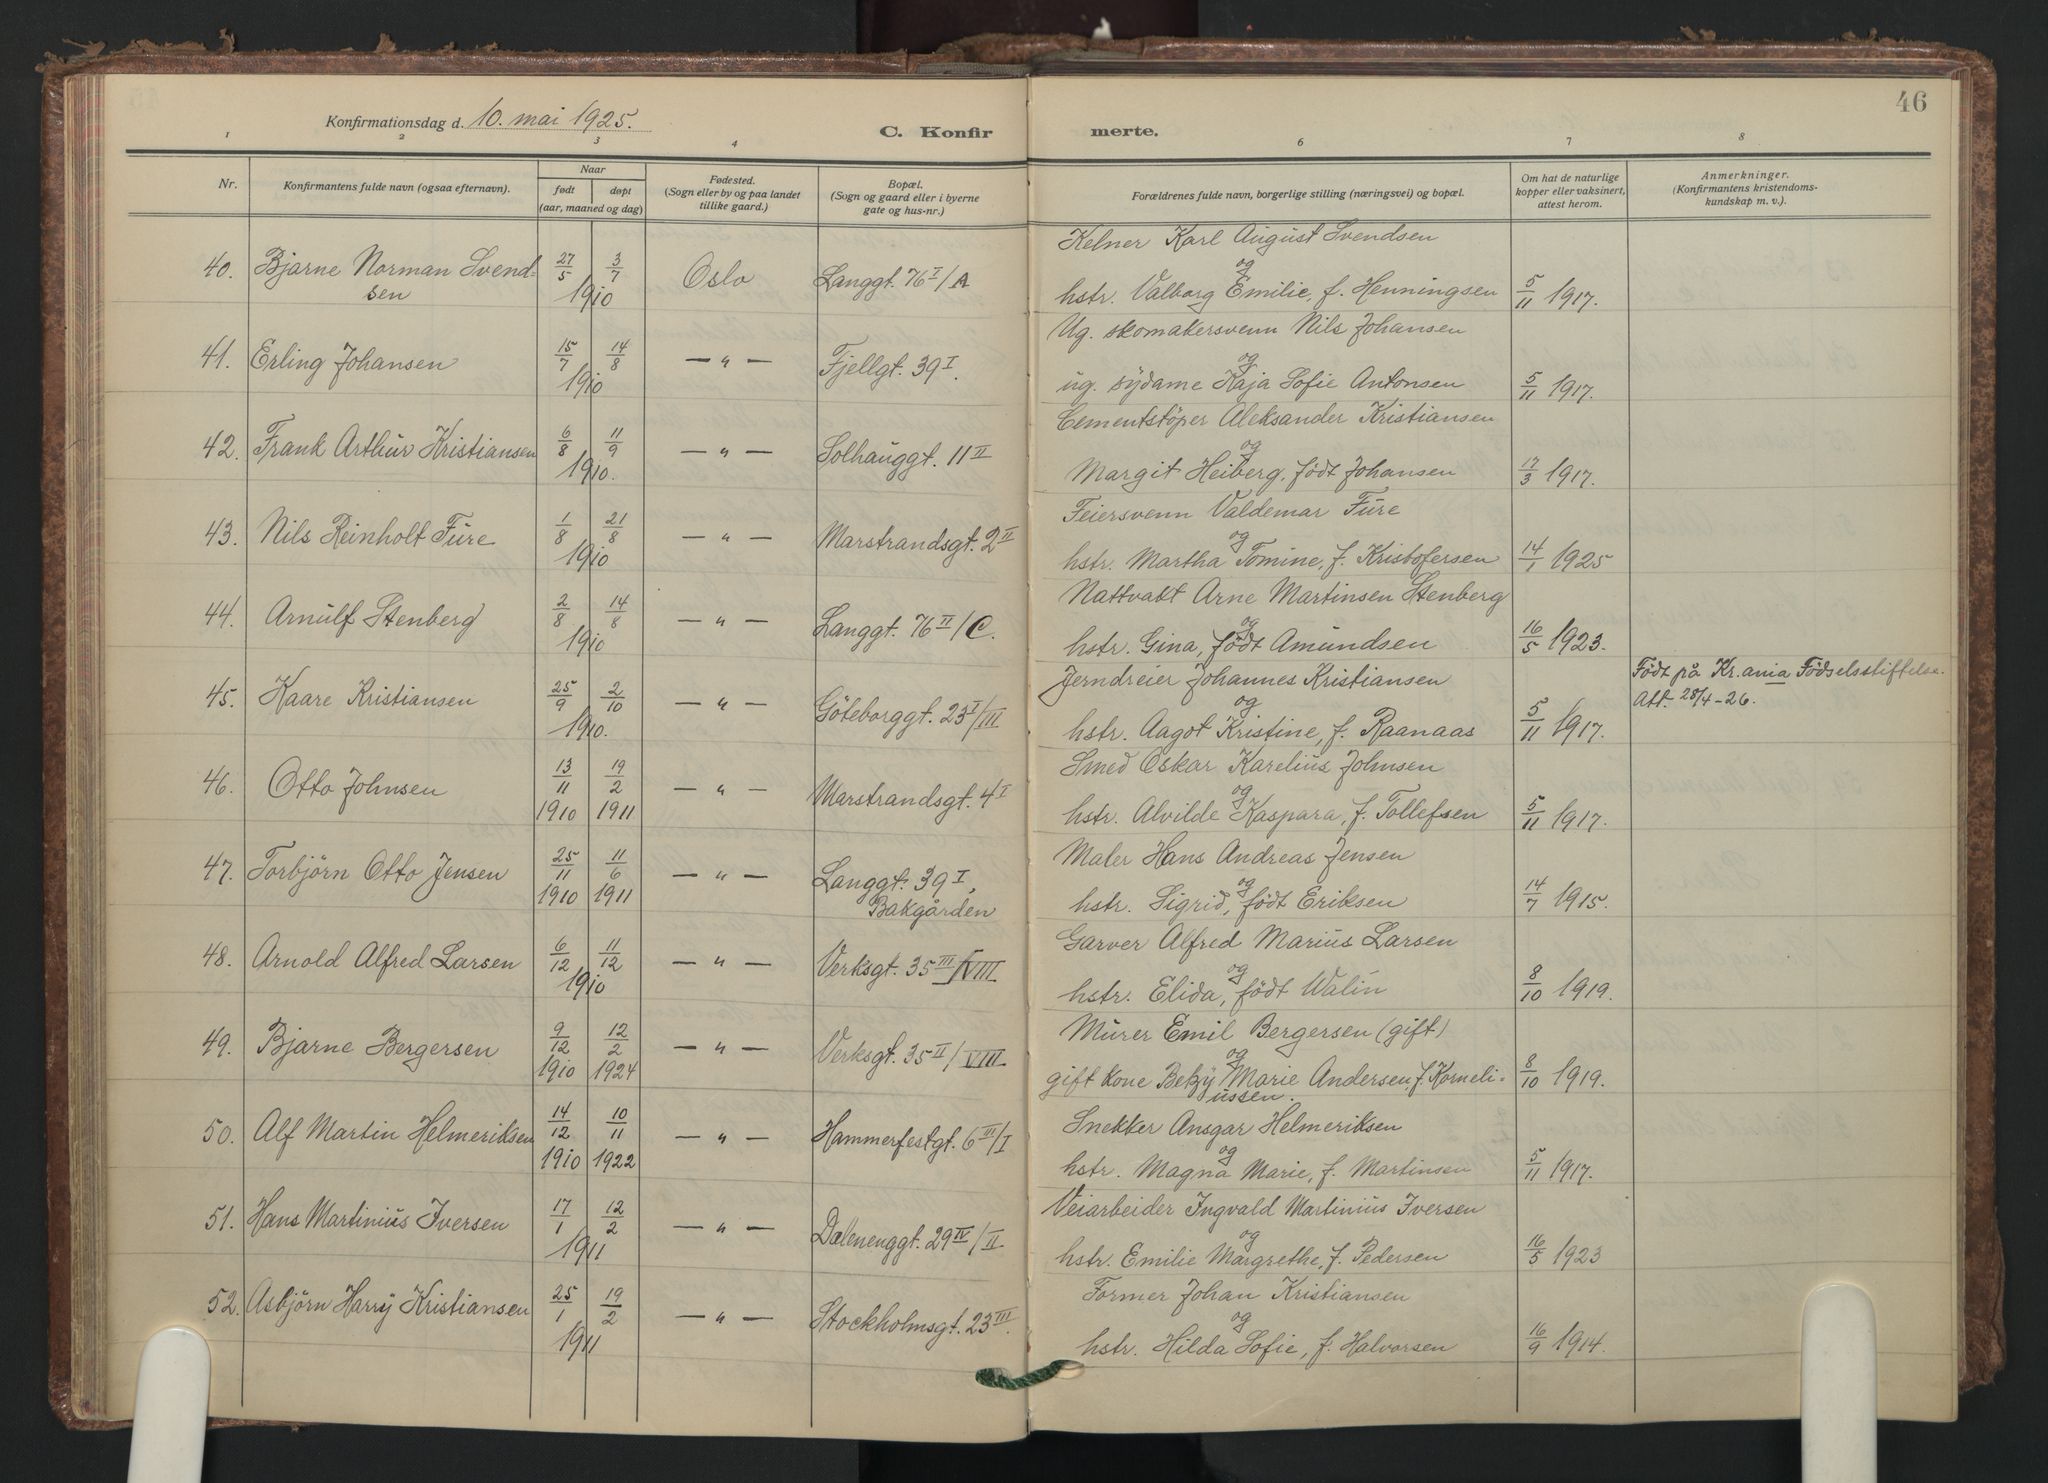 46
Konfirmationsdag d. 10. mai 1925.
C. Konfirmerte.
1 2 3 4 6 7 8
Nr.
Konfirmantens fulde navn (ogsaa efternavn).
Naar
født døpt
(aar, maaned og dag)
Fødested.
(Sogn eller by og paa landet
tillike gaard.)
Bopæl.
(Sogn og gaard eller i byerne
gate og hus-nr.)
Forældrenes fulde navn, borgerlige stilling (næringsvei) og bopæl.
Om hat de naturlige
kopper eller vaksinert,
attest herom.
Anmerkninger.
(Konfirmantens kristendoms-
kundskap m. v.)
Kelner Karl August Svendsen
40. Bjarne Norman Svend- 27/5 3/7 Oslo Langgt. 76 I/A og
sen 1910 hstr. Valborg Emilie, f. Henningsen 5/11 1917.
Ug. skomakersvenn Nils Johansen
41. Erling Johansen 15/7 14/8 — " — Fjellgt. 39 I. og
1910 ug. sydame Kaja Sofie Antonsen 5/11 1917.
Cementstöper Aleksander Kristiansen
42. Frank Arthur Kristiansen 6/8 11/9 — " — Solhauggt. 11 II og
1910. Margit Heiberg, født Johansen 17/3 1917.
Feiersvenn Valdemar Fure
43. Nils Reinholt Fure 1/8 21/8 — " — Marstrandsgt. 2 II og
1910 hstr. Martha Tomine, f. Kristofersen 14/1 1925
Nattvakt Arne Martinsen Stenberg
44. Arnulf Stenberg 2/8 14/8 — " — Langgt. 76 II/C. og
1910 hstr. Gina, født Amundsen 16/5 1923.
Jerndreier Johannes Kristiansen Födt på Kr.ania Födselsstiftelse.
45. Kaare Kristiansen 25/9 2/10 — " — Göteborggt. 23 I/III og Att. 28/4-26.
1910. hstr. Aagot Kristine, f. Raanaas 5/11 1917.
Smed Oskar Karelius Johnsen
46. Otto Johnsen 13/11 19/2 — " — Marstrandsgt. 4 I og
1910 1911 hstr. Alvilde Kaspara, f. Tollefsen 5/11 1917.
Maler Hans Andreas Jensen
47. Torbjörn Otto Jensen 25/11 11/6 — " — Langgt. 39 I, og
1910 1911 Bakgården hstr. Sigrid, födt Eriksen 14/7 1915.
Garver Alfred Marius Larsen
48. Arnold Alfred Larsen 6/12 11/12 — " — Verksgt. 35 III/VIII og
1910 hstr. Elida, födt Walin 8/10 1919.
Murer Emil Bergersen (gift)
49. Bjarne Bergersen 9/12 12/2 — " — Verksgt. 35 II/VIII og
1910 1924 gift kone Betzy Marie Andersen, f. Korneli- 8/10 1919.
ussen.
Snekker Ansgar Helmeriksen
50. Alf Martin Helmeriksen 14/12 10/11 — " — Hammerfestgt. 6 III/I og
1910 1922 hstr. Magna Marie, f. Martinsen 5/11 1917.
Veiarbeider Ingvald Martinius Iversen
51. Hans Martinius Iversen 17/1 12/2 — " — Dælenenggt. 29 IV/II og
1911 hstr. Emilie Margrethe, f. Pedersen 16/5 1923
Former Johan Kristiansen
52. Asbjörn Harry Kristiansen 25/1 19/2 — " — Stockholmsgt. 23 III. og
1911 hstr. Hilda Sofie, f. Halvorsen 16/9 1914.